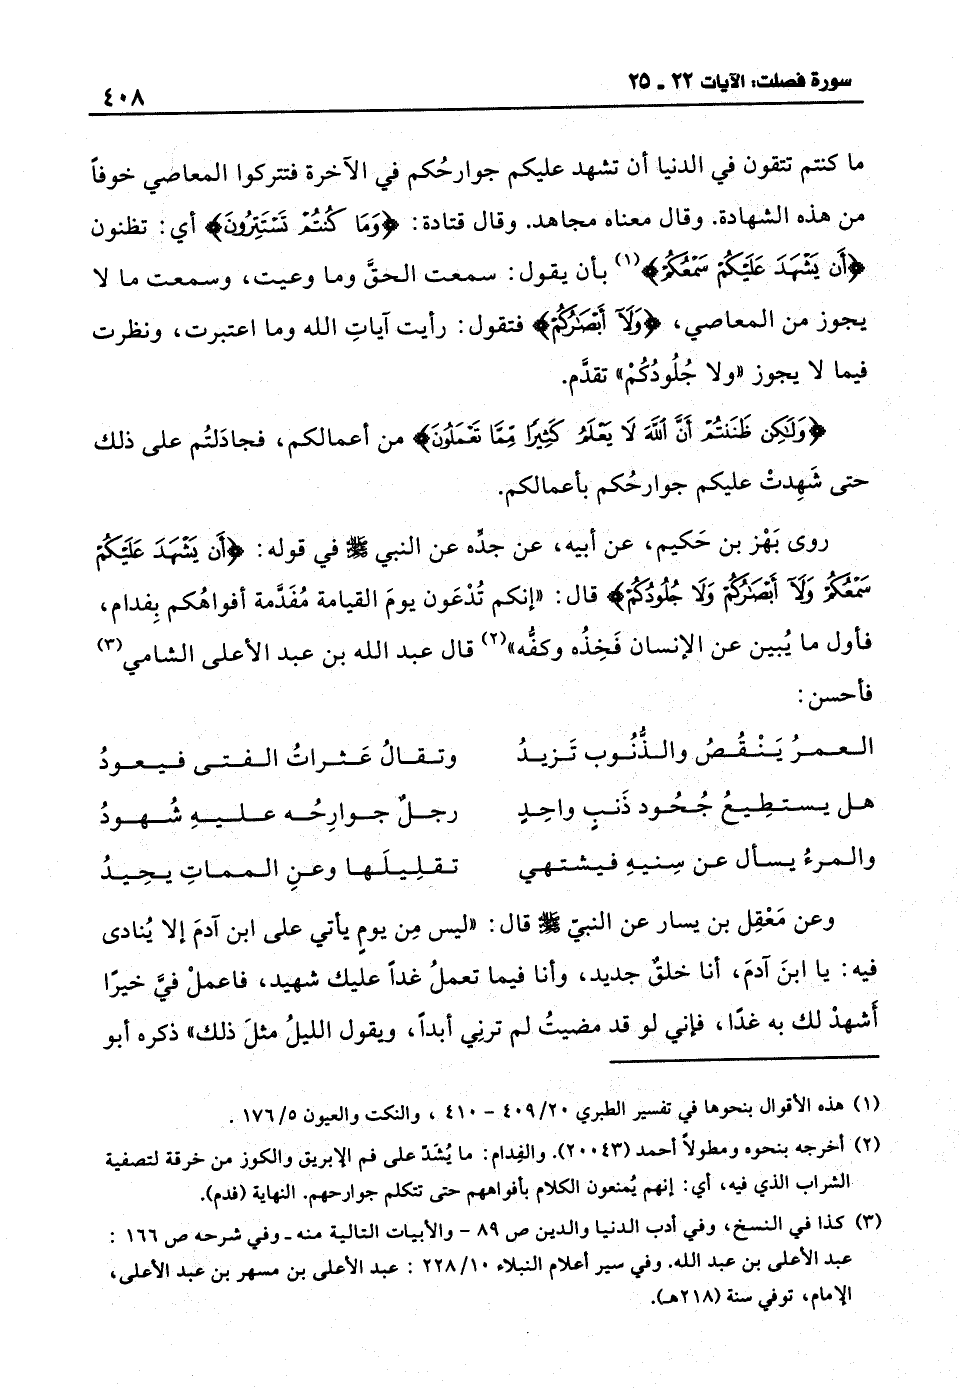 سورة فصلت: الآيات ٢٢ ـ ٢٥
٤٠٨
ما كنتم تتقون في الدنيا أن تشهد عليكم جوارحُكم في الآخرة فتتركوا المعاصي خوفاً
من هذه الشهادة. وقال معناه مجاهد. وقال قتادة: ﴿وَمَا كُنتُمْ تَسْتَتِرُونَ﴾ أي: تظنون
﴿أَن يَشْهَدَ عَلَيْكُمْ سَمْعُكُمْ﴾(١) بأن يقول: سمعت الحقَّ وما وعيت، وسمعت ما لا
يجوز من المعاصي، ﴿وَلَآ أَبْصَٰرُكُمْ﴾ فتقول: رأيت آياتِ الله وما اعتبرت، ونظرت
فيما لا يجوز «ولا جُلُودُكُمْ» تقدَّم.
﴿وَلَٰكِن ظَنَنتُمْ أَنَّ ٱللَّهَ لَا يَعْلَمُ كَثِيرًا مِّمَّا تَعْمَلُونَ﴾ من أعمالكم، فجادَلتُم على ذلك
حتى شَهِدتْ عليكم جوارحُكم بأعمالكم.
روى بَهْز بن حَكيم، عن أبيه، عن جدِّه عن النبي ﷺ في قوله: ﴿أَن يَشْهَدَ عَلَيْكُمْ
سَمْعُكُمْ وَلَآ أَبْصَٰرُكُمْ وَلَا جُلُودُكُمْ﴾ قال: «إنكم تُدْعَون يومَ القيامة مُفَدَّمة أفواهُكم بِفدام،
فأول ما يُبين عن الإنسان فَخِذُه وكفُّه»(٢) قال عبد الله بن عبد الأعلى الشامي(٣)
فأحسن:
العمرُ يَنْقُصُ والذُّنُوب تَزيدُ وتقالُ عَثراتُ الفتى فيعودُ
هل يستطِيعُ جُحُود ذَنبٍ واحِدٍ رجلٌ جوارِحُه عليهِ شُهودُ
والمرءُ يسأل عن سِنيهِ فيشتهي تقلِيلَها وعنِ المماتِ يحِيدُ
وعن مَعْقِل بن يسار عن النبيّ ﷺ قال: «ليس مِن يومٍ يأتي على ابن آدمَ إلا يُنادى
فيه: يا ابنَ آدمَ، أنا خلقٌ جديد، وأنا فيما تعملُ غداً عليك شهيد، فاعملْ فيَّ خيرًا
أَشهدْ لك به غدًا، فإني لو قد مضيتُ لم ترنِي أبداً، ويقول الليلُ مثلَ ذلك» ذكره أبو
(١) هذه الأقوال بنحوها في تفسير الطبري ٢٠/ ٤٠٩ - ٤١٠ ، والنكت والعيون ٥/ ١٧٦ .
(٢) أخرجه بنحوه ومطولاً أحمد (٢٠٠٤٣). والفِدام: ما يُشَدّ على فم الإبريق والكوز من خرقة لتصفية
الشراب الذي فيه، أي: إنهم يُمنعون الكلام بأفواههم حتى تتكلم جوارحهم. النهاية (فدم).
(٣) كذا في النسخ، وفي أدب الدنيا والدين ص ٨٩ - والأبيات التالية منه ـ وفي شرحه ص ١٦٦ :
عبد الأعلى بن عبد الله. وفي سير أعلام النبلاء ١٠/ ٢٢٨ : عبد الأعلى بن مسهر بن عبد الأعلى،
الإمام، توفي سنة (٢١٨هـ).